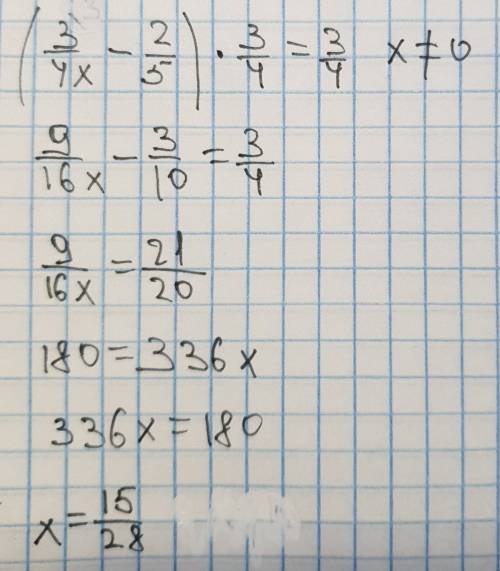 (3/4x - 2/5) · 3/4 = 3/4 x ≠ 0
9/16x - 3/10 = 3/4
9/16x = 21/20
180 = 336x
336x = 180
x = 15/28